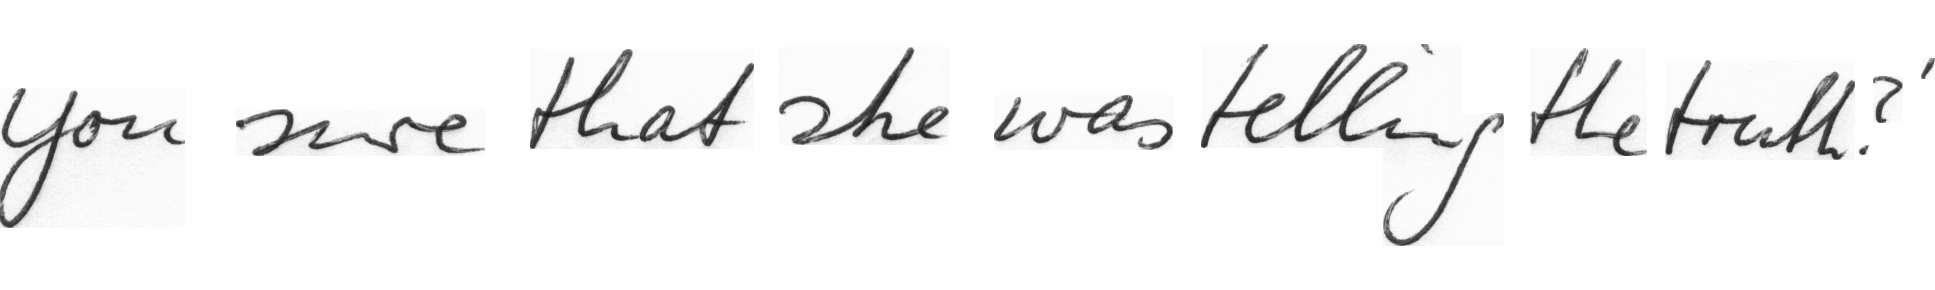 you sure that she was telling the truth?'